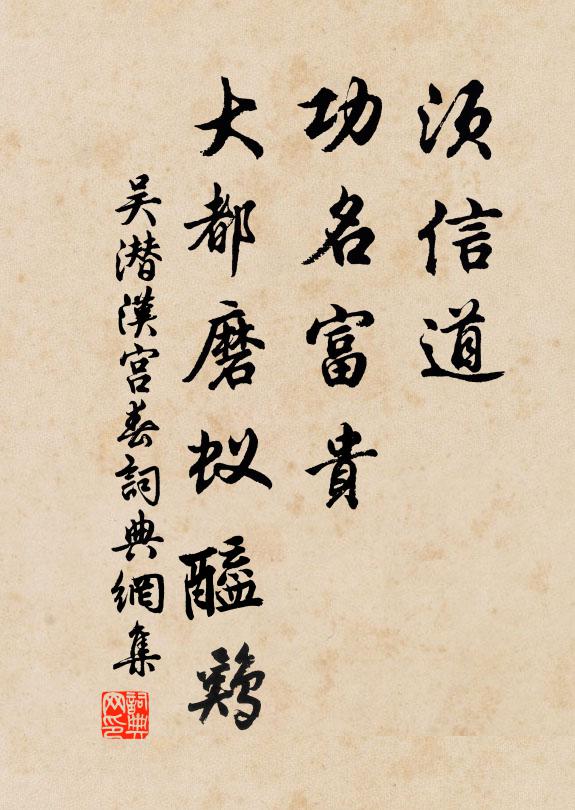 须信道
功名富貴
大都磨蚁醯鷄
吴潜漢宫春詞典網集
詞典网印